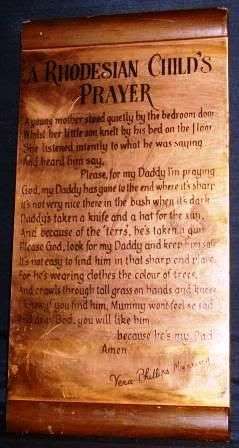 A RHODESIAN CHILD'S
PRAYER
A young mother stood quietly by the bedroom door
Whilst her little son knelt by his bed on the floor
She listened intently to what he was saying
And heard him say,
Please, for my Daddy I'm praying
God, my Daddy has gone to the end where it's sharp
It's not very nice there in the bush when it's dark
Daddy's taken a knife and a hat for the sun,
And because of the 'terrs', he's taken a gun
Please God, look for my Daddy and keep him safe
It's not easy to find him in that sharp end place
For he's wearing clothes the colour of trees,
And crawls through tall grass on hands and knees
you find him, Mummy won't feel so sad
God, you will like him
because he's my Dad
Amen
Vera Phillips